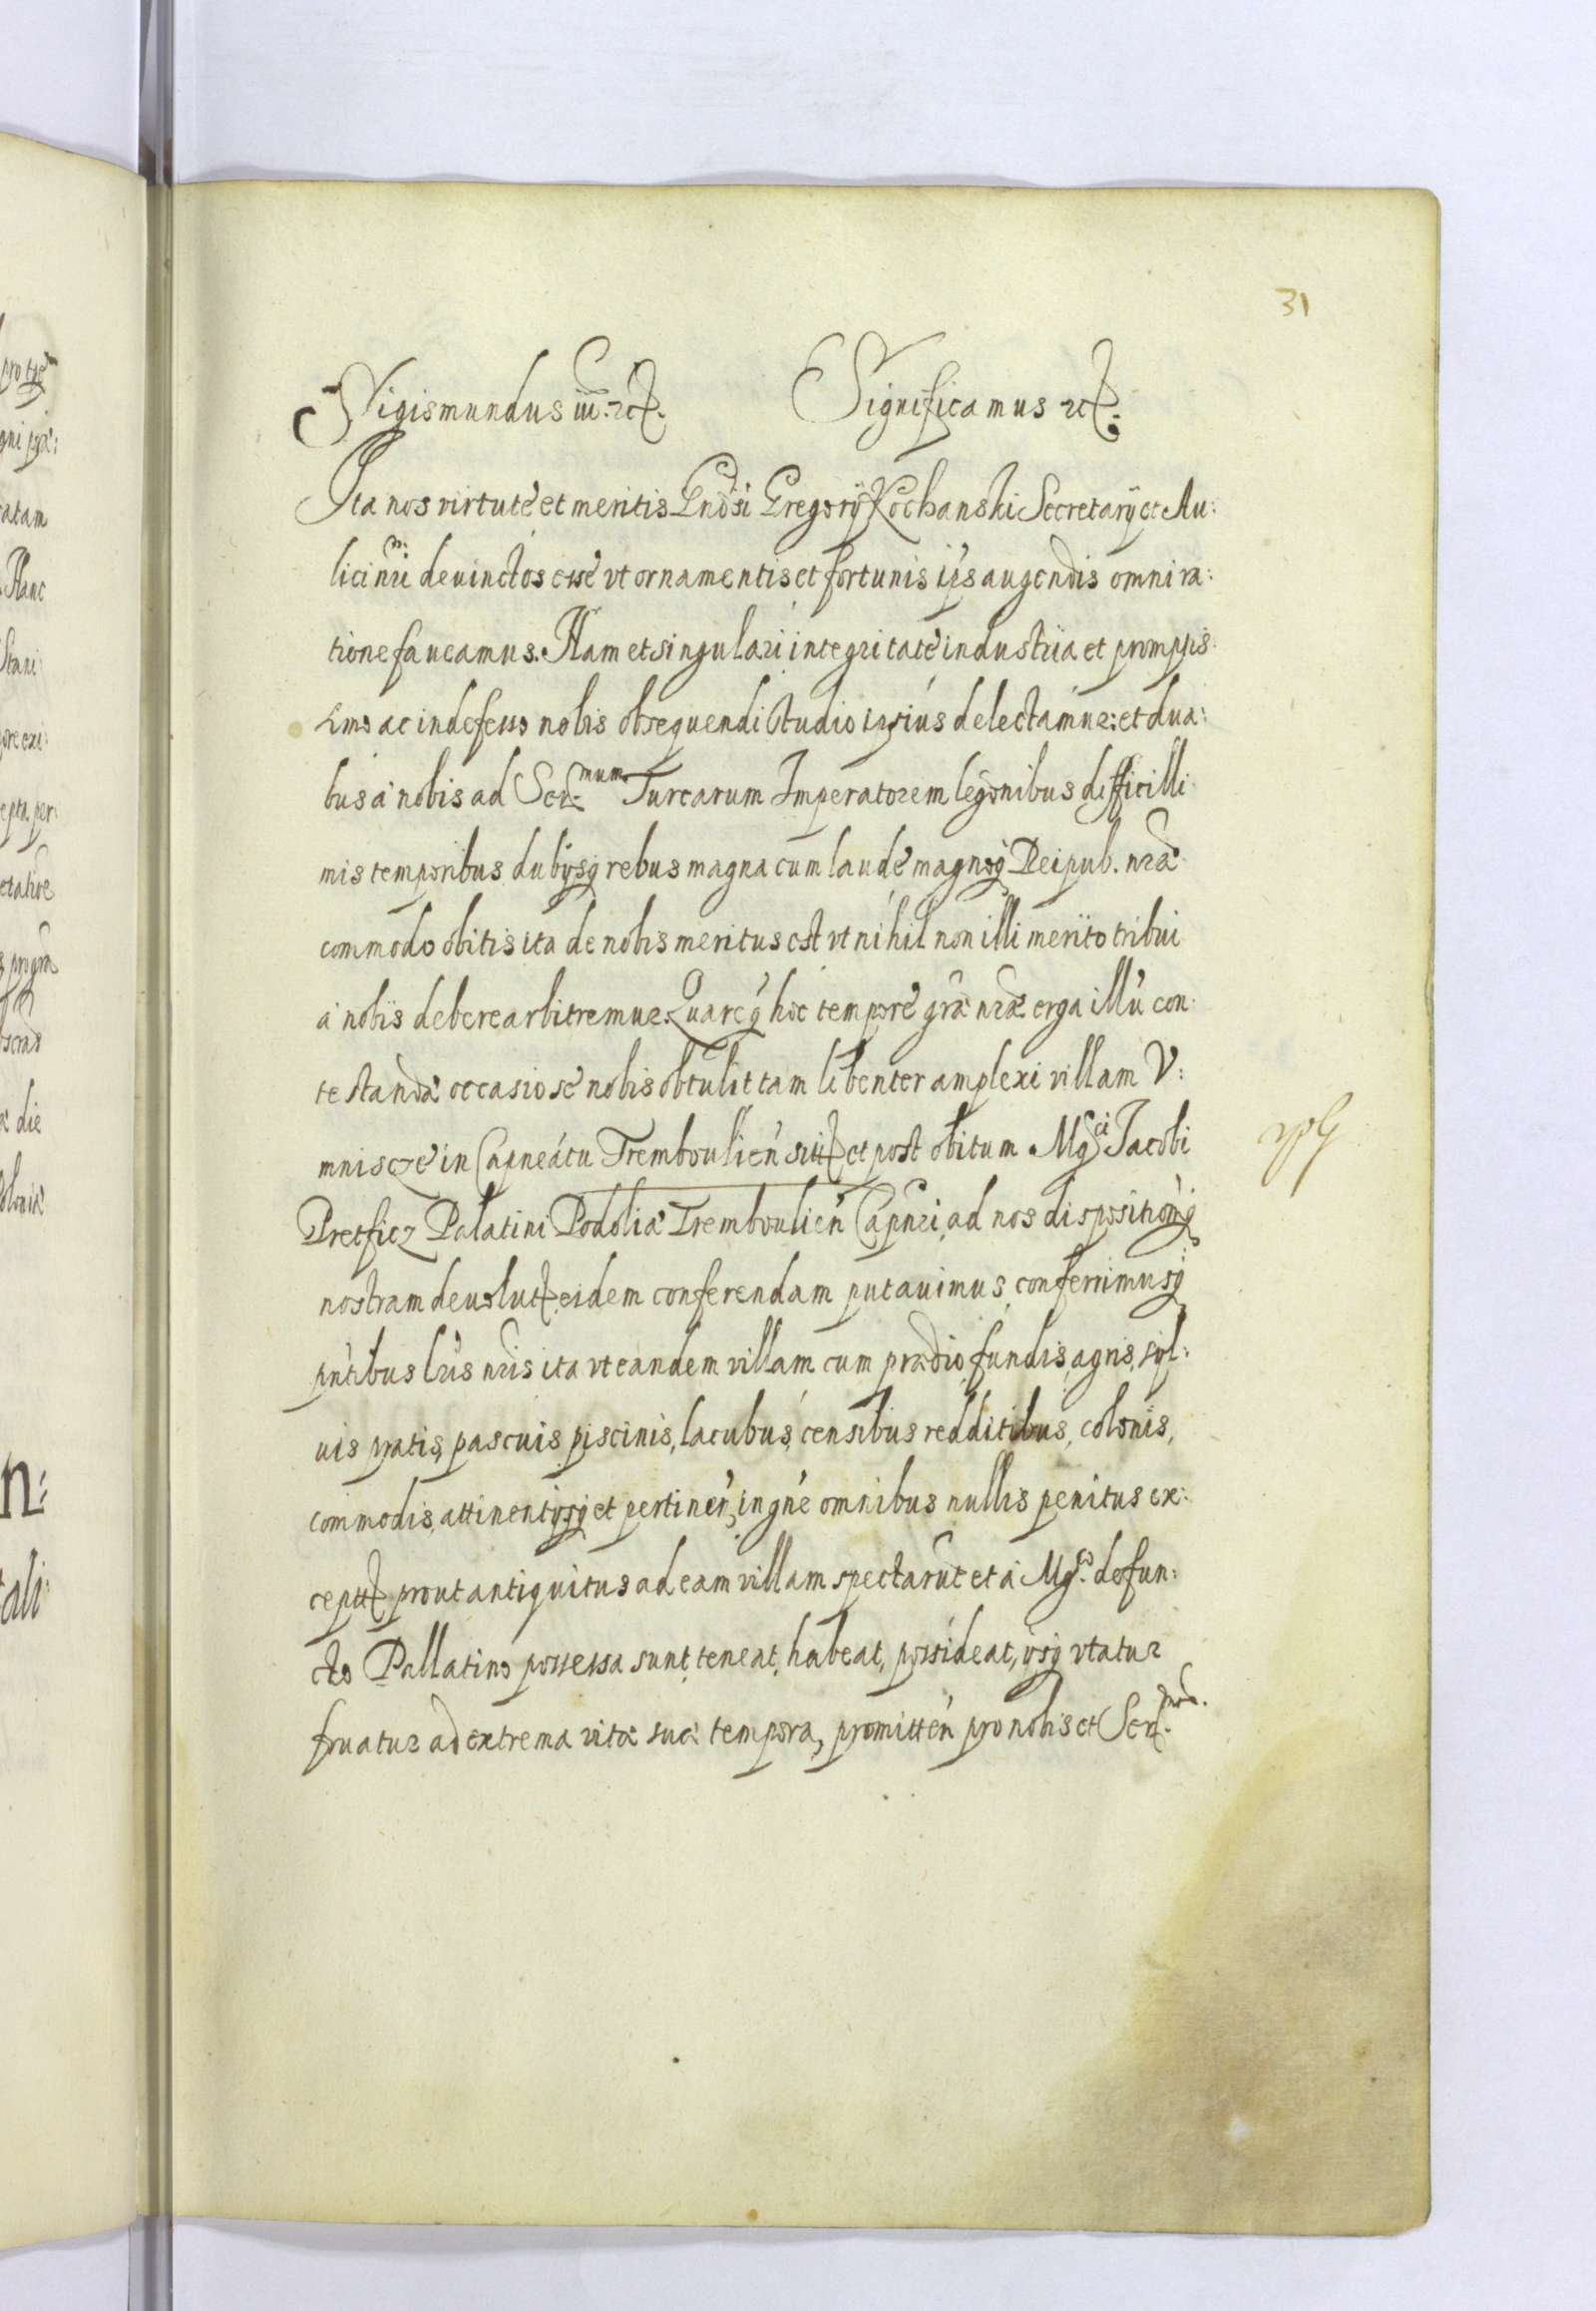 31
Sigismundus iii. etc. Significamus etc.
Ita nos virtute et meritis Gnosi Gregorij Kochanski Secretarij et Au:
lici nri deuinctos esse vt ornamentis et fortunis ips augendis omni ra:
tione faueamus. Nam et singulari integritate industria et promptis:
simo ac indefesso nobis obsequendi studio ipsius delectamur: et dua:
bus a nobis ad Ser.mum Turcarum Imperatorem legonibus difficilli:
mis temporibus dubijsq rebus magna cum laude magnoq Reipub. nrae
commodo obitis ita de nobis meritus est vt nihil non illi merito tribui
a nobis debere arbitremur. Quare q hoc tempore grae nrae erga illu con:
testandae occasio se nobis obtulit tam libenter amplexi villam V:
mniscze in Capneatu Tremboulien sitt et post obitum Mgci Jacobi
Pretficz Palatini Podoliae Trembouliē Capnei, ad nos dispositionēq
nostram deuolut, eidem conferendam putauimus, conferrimusq
pntibus lris nris ita vt eandem villam cum praedio, fundis, agris, syl:
uis pratis, pascuis piscinis, lacubus, censibus redditibus, colonis,
commodis, attinentijsq et pertinen, in gne omnibus nullis penitus ex:
ceptt prout antiquitus ad eam villam spectarūt et a Mgco defun:
cto Pallatino possessa sunt, teneat, habeat, possideat, ijsq vtatur
fruatur ad extrema vitae suae tempora, promitten pro nobis et Ser.mis